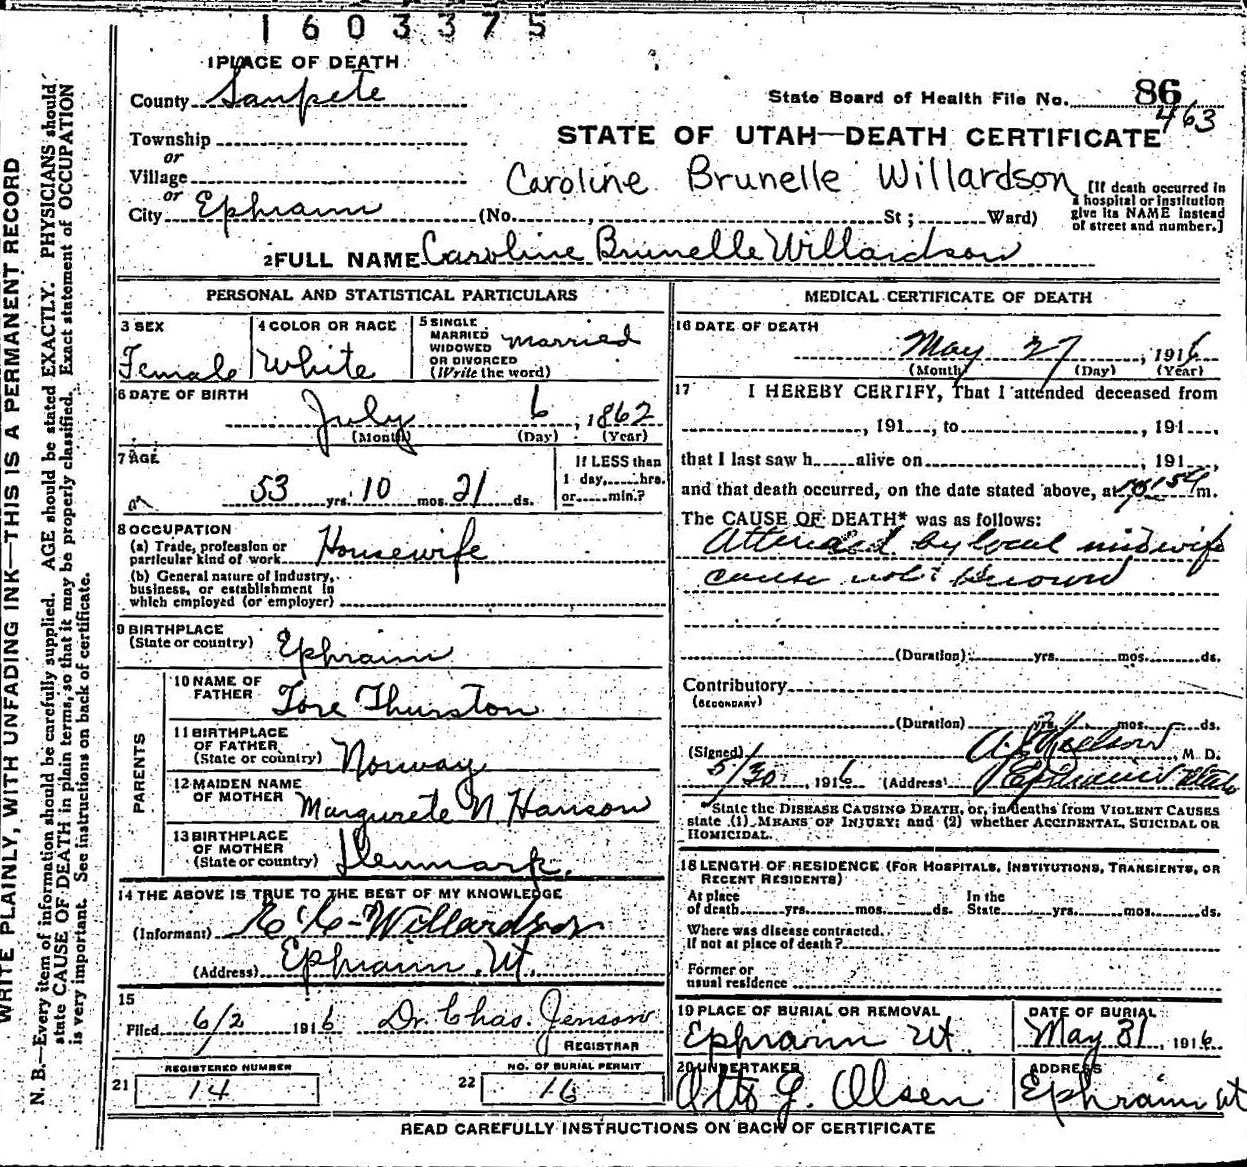 1603375
1 PLACE OF DEATH
County Sanpete
State Board of Health File No. 86
463
Township
STATE OF UTAH—DEATH CERTIFICATE
or
Village
Caroline Brunelle Willardson
or
City Ephraim (No. , St ; Ward)
[If death occurred in
a hospital or institution
give its NAME instead
of street and number.]
2 FULL NAME Caroline Brunelle Willardson
PERSONAL AND STATISTICAL PARTICULARS
3 SEX
Female
4 COLOR OR RACE
White
5 SINGLE
MARRIED
WIDOWED
OR DIVORCED
(Write the word)
Married
6 DATE OF BIRTH
July 6, 1862
(Month) (Day) (Year)
7 AGE
53 yrs. 10 mos. 21 ds.
If LESS than
1 day, hrs.
or min.?
8 OCCUPATION
(a) Trade, profession or
particular kind of work Housewife
(b) General nature of industry,
business, or establishment in
which employed (or employer)
9 BIRTHPLACE
(State or country) Ephraim
PARENTS
10 NAME OF
FATHER Tore Thurston
11 BIRTHPLACE
OF FATHER
(State or country) Norway
12 MAIDEN NAME
OF MOTHER Margurete N Hanson
13 BIRTHPLACE
OF MOTHER
(State or country) Denmark.
14 THE ABOVE IS TRUE TO THE BEST OF MY KNOWLEDGE
(Informant) Willardson
(Address) Ephraim, Ut.
15
Filed 6/2 1916 Dr. Chas. Jenson
REGISTRAR
21 REGISTERED NUMBER
14
22 NO. OF BURIAL PERMIT
16
MEDICAL CERTIFICATE OF DEATH
16 DATE OF DEATH
May 27, 1916
(Month) (Day) (Year)
17 I HEREBY CERTIFY, That I attended deceased from
, 191 , to , 191 ,
that I last saw h alive on , 191 ,
and that death occurred, on the date stated above, at m.
The CAUSE OF DEATH* was as follows:
Attended by local midwife
cause not known
(Duration) yrs. mos. ds.
Contributory
(SECONDARY)
(Duration) yrs. mos. ds.
(Signed) , M. D.
5/30, 1916 (Address) Ephraim Utah
*State the DISEASE CAUSING DEATH, or, in deaths from VIOLENT CAUSES
state (1) MEANS OF INJURY; and (2) whether ACCIDENTAL, SUICIDAL OR
HOMICIDAL.
18 LENGTH OF RESIDENCE (FOR HOSPITALS, INSTITUTIONS, TRANSIENTS, OR
RECENT RESIDENTS)
At place In the
of death yrs. mos. ds. State yrs. mos. ds.
Where was disease contracted,
if not at place of death?
Former or
usual residence
19 PLACE OF BURIAL OR REMOVAL
Ephraim Ut.
DATE OF BURIAL
May 31, 1916
20 UNDERTAKER
Otto G. Olsen
ADDRESS
Ephraim Ut
READ CAREFULLY INSTRUCTIONS ON BACK OF CERTIFICATE
WRITE PLAINLY, WITH UNFADING INK—THIS IS A PERMANENT RECORD
N. B.—Every item of information should be carefully supplied. AGE should be stated EXACTLY. PHYSICIANS should
state CAUSE OF DEATH in plain terms, so that it may be properly classified. Exact statement of OCCUPATION
is very important. See instructions on back of certificate.